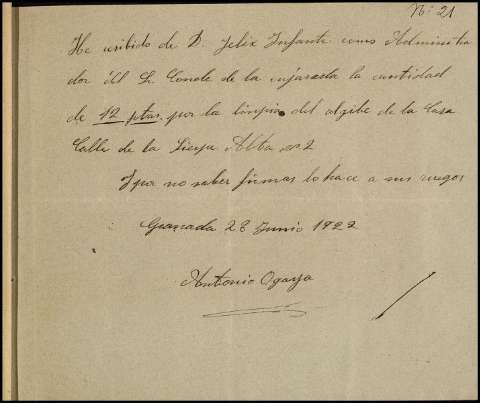 Nº 21
He recibido de D. Felix Infante como Administra
dor del Sr. Conde de la la cantidad
de 12 ptas, por la limpia del algibe de la Casa
Calle de la Sierpe Alta nº 2
Y por no saber firmar lo hace a sus ruegos
Granada 28 Junio 1922
Antonio Ogaya